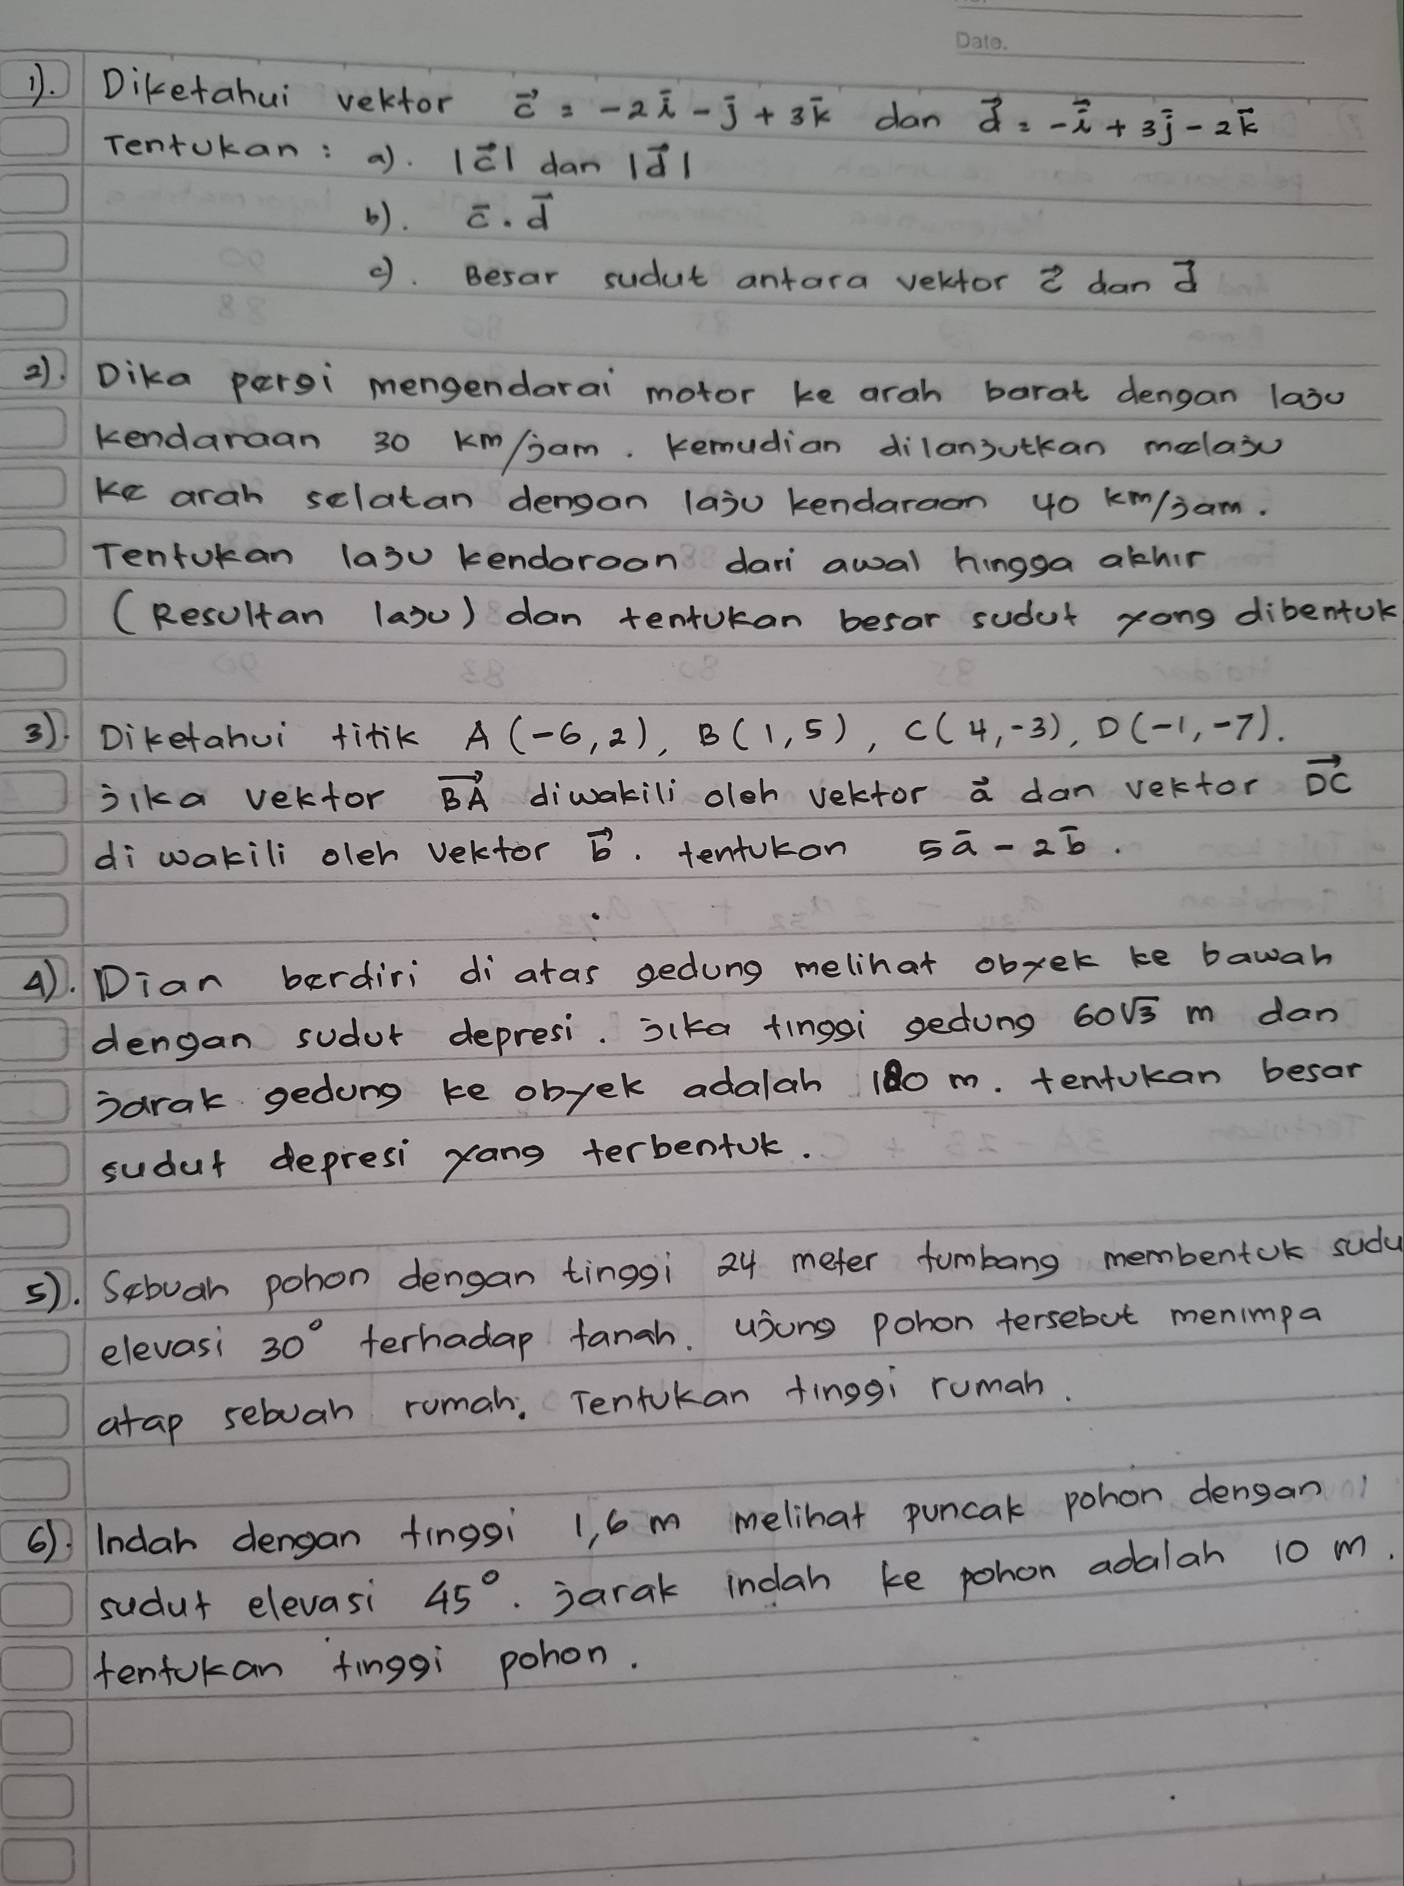 Date.
1). Diketahui vektor c⃗ = -2ī - j̄ + 3k̄ dan d⃗ = -i⃗ + 3j̄ - 2k̄
Tentukan : a). |c⃗| dan |d⃗|
b). c̄ . d⃗
c). Besar sudut antara vektor c⃗ dan d⃗
2). Dika pergi mengendarai motor ke arah barat dengan laju
kendaraan 30 km/jam. kemudian dilanjutkan melaju
ke arah selatan dengan laju kendaraan 40 km/jam.
Tentukan laju kendaraan dari awal hingga akhir
(Resultan laju) dan tentukan besar sudut yang dibentuk
3). Diketahui titik A (-6,2), B (1,5), C(4,-3), D(-1,-7).
jika vektor BA⃗ diwakili oleh vektor a⃗ dan vektor DC⃗
di wakili oleh vektor b⃗. tentukan 5ā - 2b̄.
4). Dian berdiri di atas gedung melihat obyek ke bawah
dengan sudut depresi. jika tinggi gedung 60√3 m dan
jarak gedung ke obyek adalah 180 m. tentukan besar
sudut depresi yang terbentuk.
5). Sebuah pohon dengan tinggi 24 meter tumbang membentuk sudu
elevasi 30° terhadap tanah. ujung pohon tersebut menimpa
atap sebuah rumah. Tentukan tinggi rumah.
6). Indah dengan tinggi 1,6 m melihat puncak pohon dengan
sudut elevasi 45°. jarak indah ke pohon adalah 10 m.
tentukan tinggi pohon.